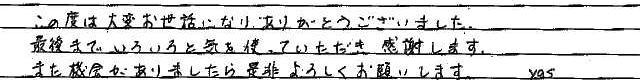 この度は大変お世話になりありがとうございました.
最後まで いろいろと気を使っていただき 感謝します.
また機会がありましたら是非よろしくお願いします. yas